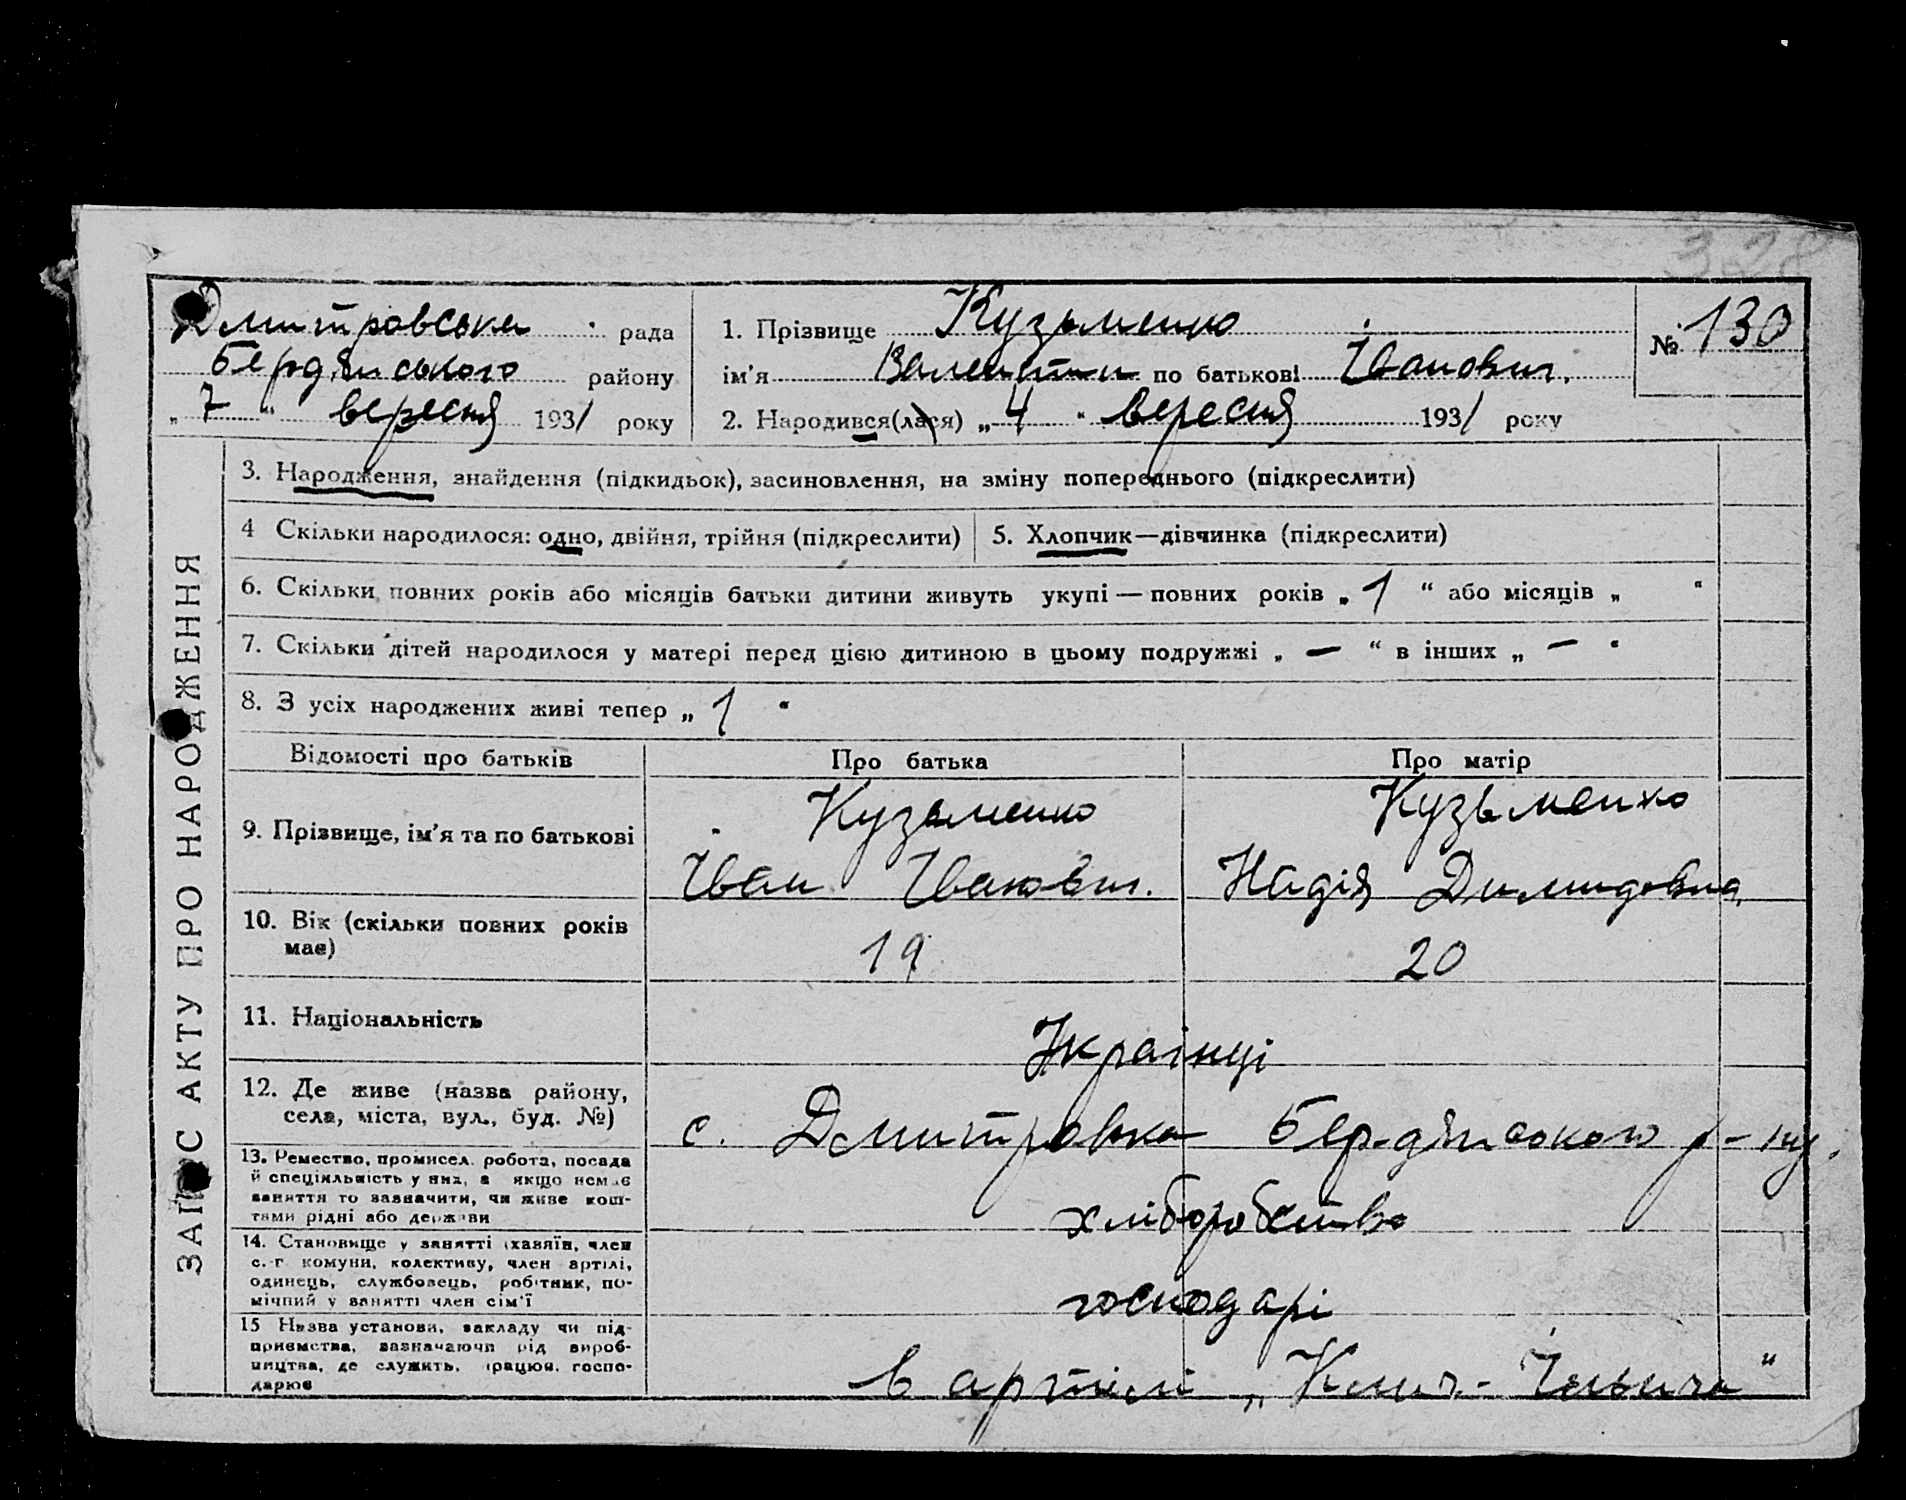 328
Дмитровська рада
Бердянського району
„ 7 “ вересня 1931 року
1. Прізвище Кузьменко
ім'я Валентин по батькові Іванович.
2. Народився(лася) „ 4 “ вересня 1931 року
№ 130
ЗАПИС АКТУ ПРО НАРОДЖЕННЯ
3. Народження, знайдення (підкидьок), засиновлення, на зміну попереднього (підкреслити)
4 Скільки народилося: одно, двійня, трійня (підкреслити)
5. Хлопчик—дівчинка (підкреслити)
6. Скільки повних років або місяців батьки дитини живуть укупі — повних років „ 1 “ або місяців „ “
7. Скільки дітей народилося у матері перед цією дитиною в цьому подружжі „ — “ в інших „ — “
8. З усіх народжених живі тепер „ 1 “
Відомості про батьків Про батька Про матір
9. Прізвище, ім'я та по батькові
Кузьменко
Іван Іванович.
Кузьменко
Надія Демидовна
10. Вік (скільки повних років
має)
19 20
11. Національність
Українці
12. Де живе (назва району,
села, міста, вул., буд. №)
с. Дмитровка Бердянського р-ну.
13. Ремество, промисел, робота, посада
й спеціяльність у них, а якщо немає
заняття то зазначити, чи живе кош-
тами рідні або держави
хліборобство
14. Становище у занятті (хазяїн, член
с.-г комуни, колективу, член артілі,
одинець, службовець, робітник, по-
мічний у занятті член сім'ї
господарі
15 Назва установи, закладу чи під-
приємства, зазначаючи рід вироб-
ництва, де служить, працює, госпо-
дарює
в артілі „ Ільича “